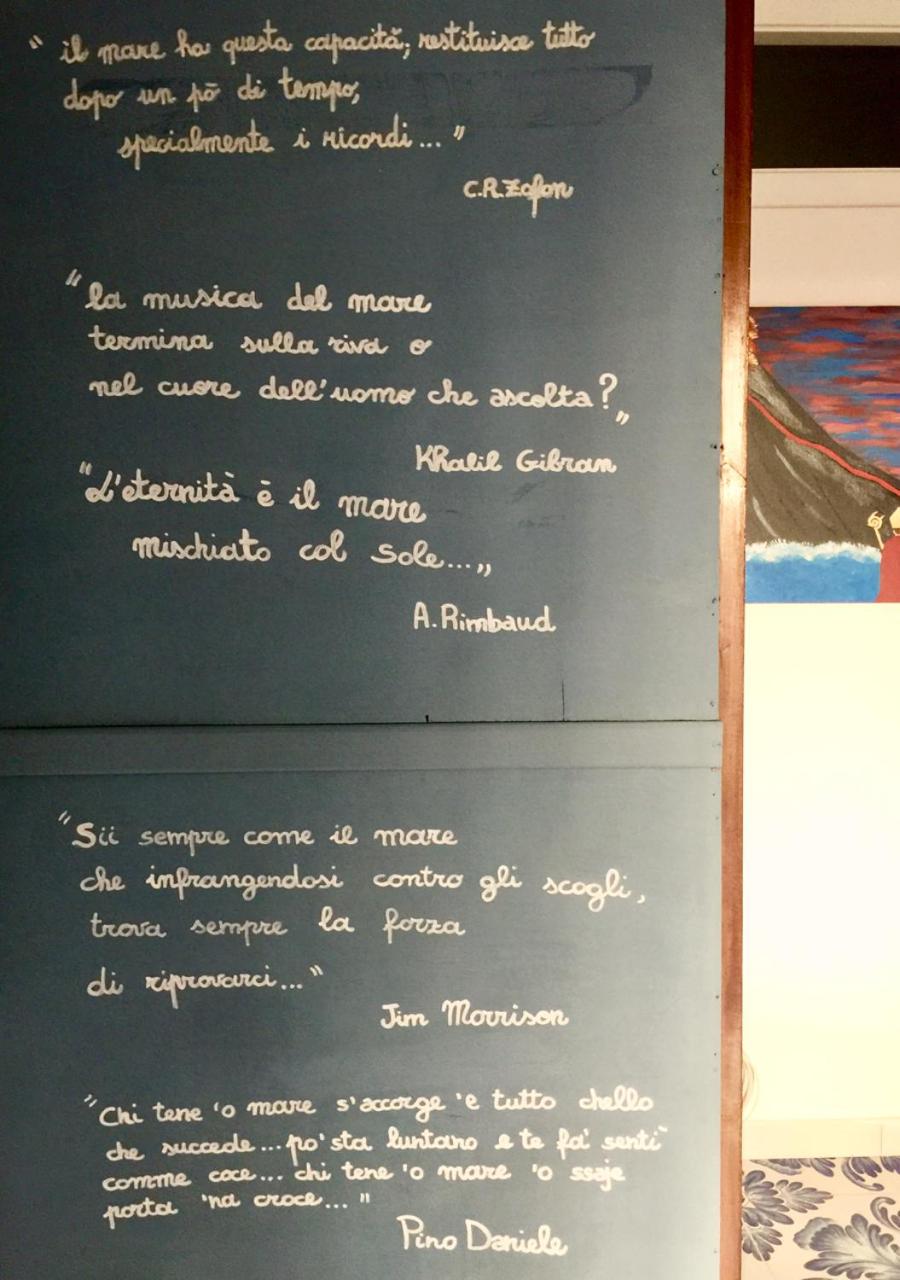 " il mare ha questa capacità; restituisce tutto
dopo un pō di tempo,
specialmente i ricordi... "
C.R.Zafon
"la musica del mare
termina sulla riva o
nel cuore dell'uomo che ascolta?"
Khalil Gibran
"L'eternità è il mare
mischiato col sole...„
A.Rimbaud
"Sii sempre come il mare
che infrangendosi contro gli scogli,
trova sempre la forza
di riprovarci..."
Jim Morrison
"Chi tene 'o mare s'accorge 'e tutto chello
che succede...po' sta luntano e te fa' senti`
comme coce... chi tene 'o mare 'o ssaje
porta 'na croce... "
Pino Daniele